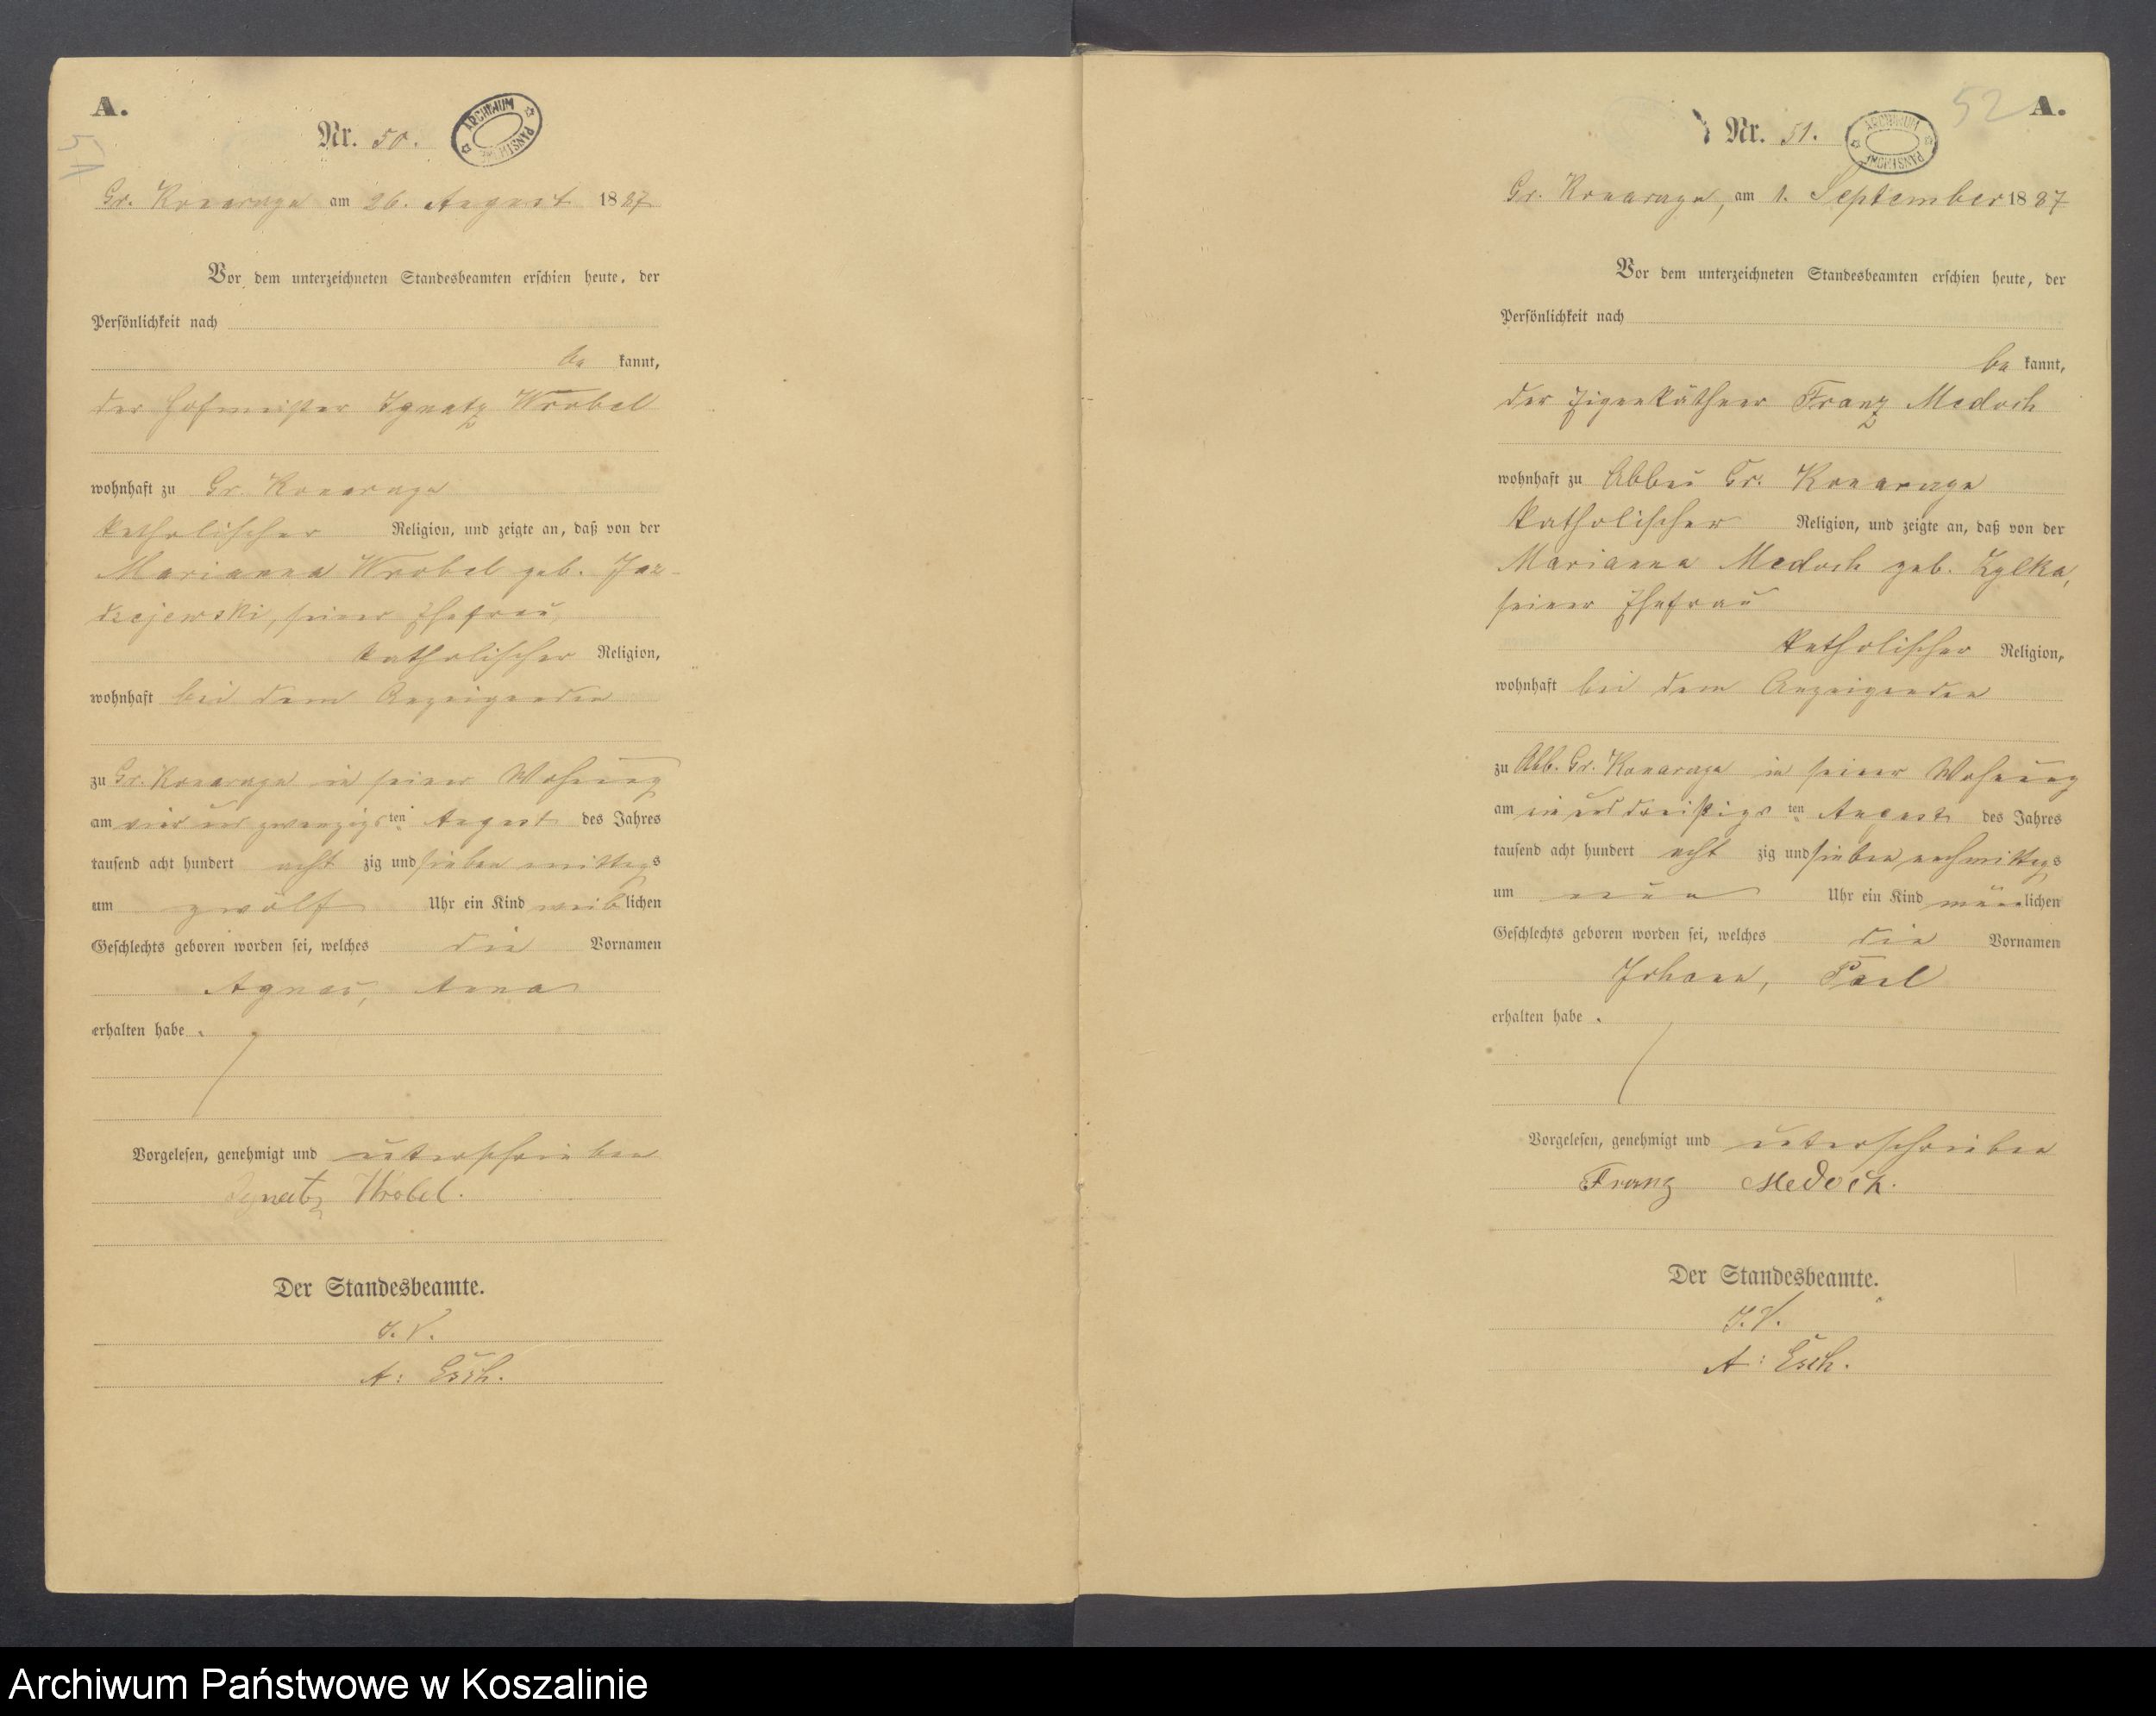 A.
51
Nr. 50.
ARCHIWUM PAŃSTWOWE
Gr. Konarzyn am 26. August 1887
Vor dem unterzeichneten Standesbeamten erschien heute, der
Persönlichkeit nach
be kannt,
der Hofmeister Ignatz Wrobel
wohnhaft zu Gr. Konarzyn
katholischer Religion, und zeigte an, daß von der
Marianna Wrobel geb. Jen-
drzejewski, seiner Ehefrau,
katholischer Religion,
wohnhaft bei dem Anzeigenden
zu Gr. Konarzyn in seiner Wohnung
am vier und zwanzigs ten August des Jahres
tausend acht hundert acht zig und sieben mittags
um zwölf Uhr ein Kind weiblichen
Geschlechts geboren worden sei, welches die Vornamen
Agnes, Anna
erhalten habe.
Vorgelesen, genehmigt und unterschrieben
Ignatz Wrobel.
Der Standesbeamte.
J. V.
A: Esch.
52 A.
Nr. 51.
ARCHIWUM PAŃSTWOWE
Gr. Konarzyn, am 1. September 1887
Vor dem unterzeichneten Standesbeamten erschien heute, der
Persönlichkeit nach
be kannt,
der Eigenkäthner Franz Medoch
wohnhaft zu Abbau Gr. Konarzyn
katholischer Religion, und zeigte an, daß von der
Marianna Medoch geb. Zylka,
seiner Ehefrau
katholischer Religion,
wohnhaft bei dem Anzeigenden
zu Abb. Gr. Konarzyn in seiner Wohnung
am ein und dreißigs ten August des Jahres
tausend acht hundert acht zig und sieben nachmittags
um neun Uhr ein Kind männlichen
Geschlechts geboren worden sei, welches die Vornamen
Johann, Paul
erhalten habe.
Vorgelesen, genehmigt und unterschrieben
Franz Medoch.
Der Standesbeamte.
J. V.
A: Esch.
Archiwum Państwowe w Koszalinie